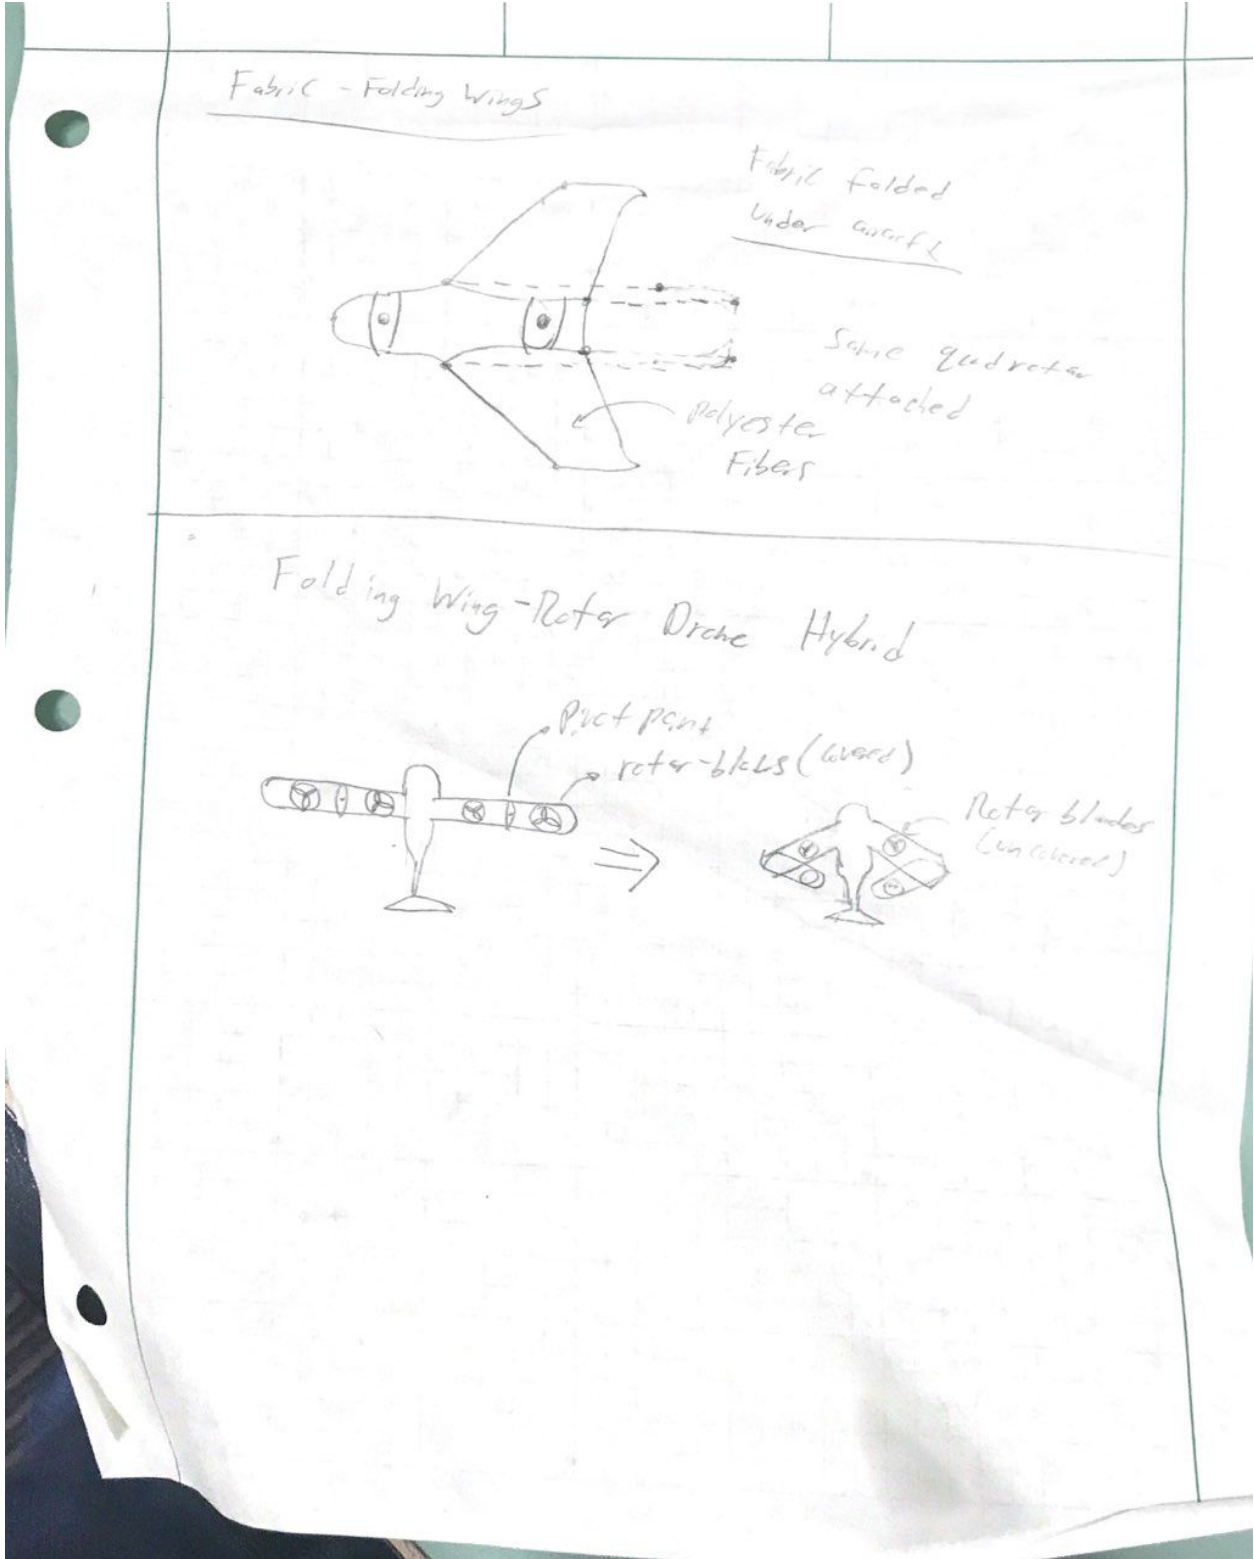 Fabric - Folding Wings
Fabric folded
under
Same quadrotor
attached
polyester
Fibers
Folding Wing-Rotor Drone Hybrid
Pivot point
rotor-blades (covered)
Rotor blades
(uncovered)